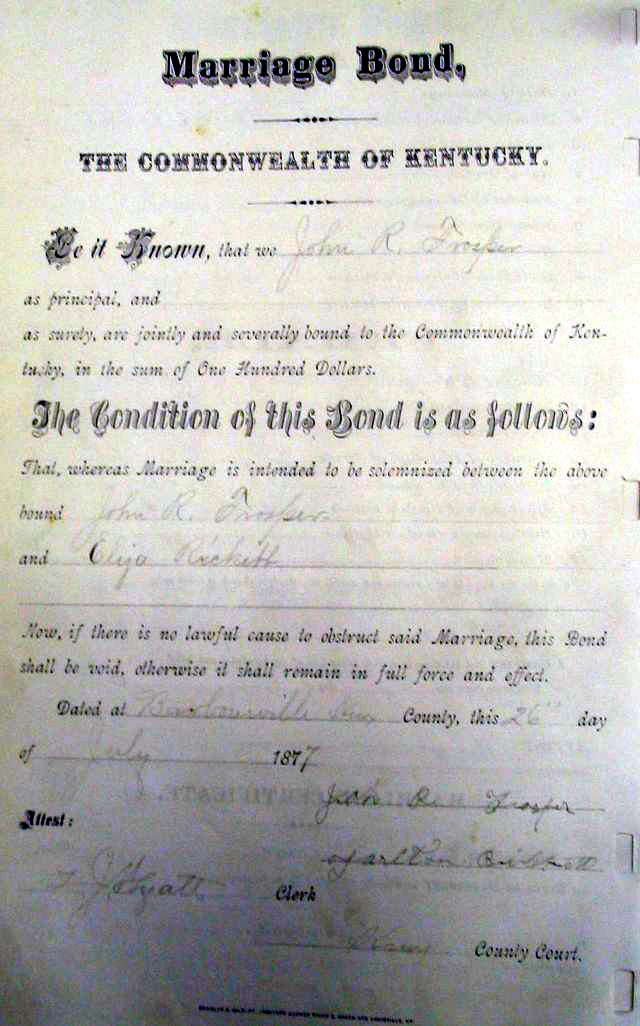 Marriage Bond,
THE COMMONWEALTH OF KENTUCKY.
Be it Known, that we John R. Trosper
as principal, and
as surety, are jointly and severally bound to the Commonwealth of Ken-
tucky, in the sum of One Hundred Dollars.
The Condition of this Bond is as follows:
That, whereas Marriage is intended to be solemnized between the above
bound John R. Trosper
and Eliza Rickett
Now, if there is no lawful cause to obstruct said Marriage, this Bond
shall be void, otherwise it shall remain in full force and effect.
Dated at Barbourville Knox County, this 26" day
of July 1877
John R Trosper
Attest:
Clerk
Knox County Court.